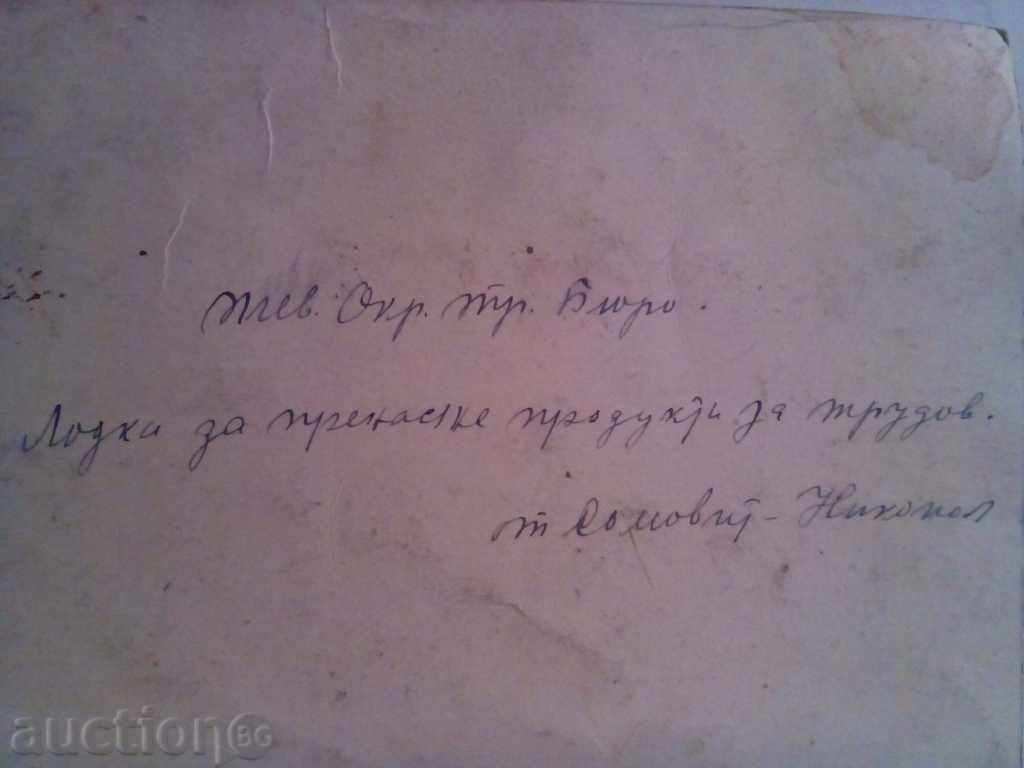 Плев. Окр. Тр. Бюро.
Лодки за пренасяне продукти за трудов.
т Сомовит - Никопол
auctionBG